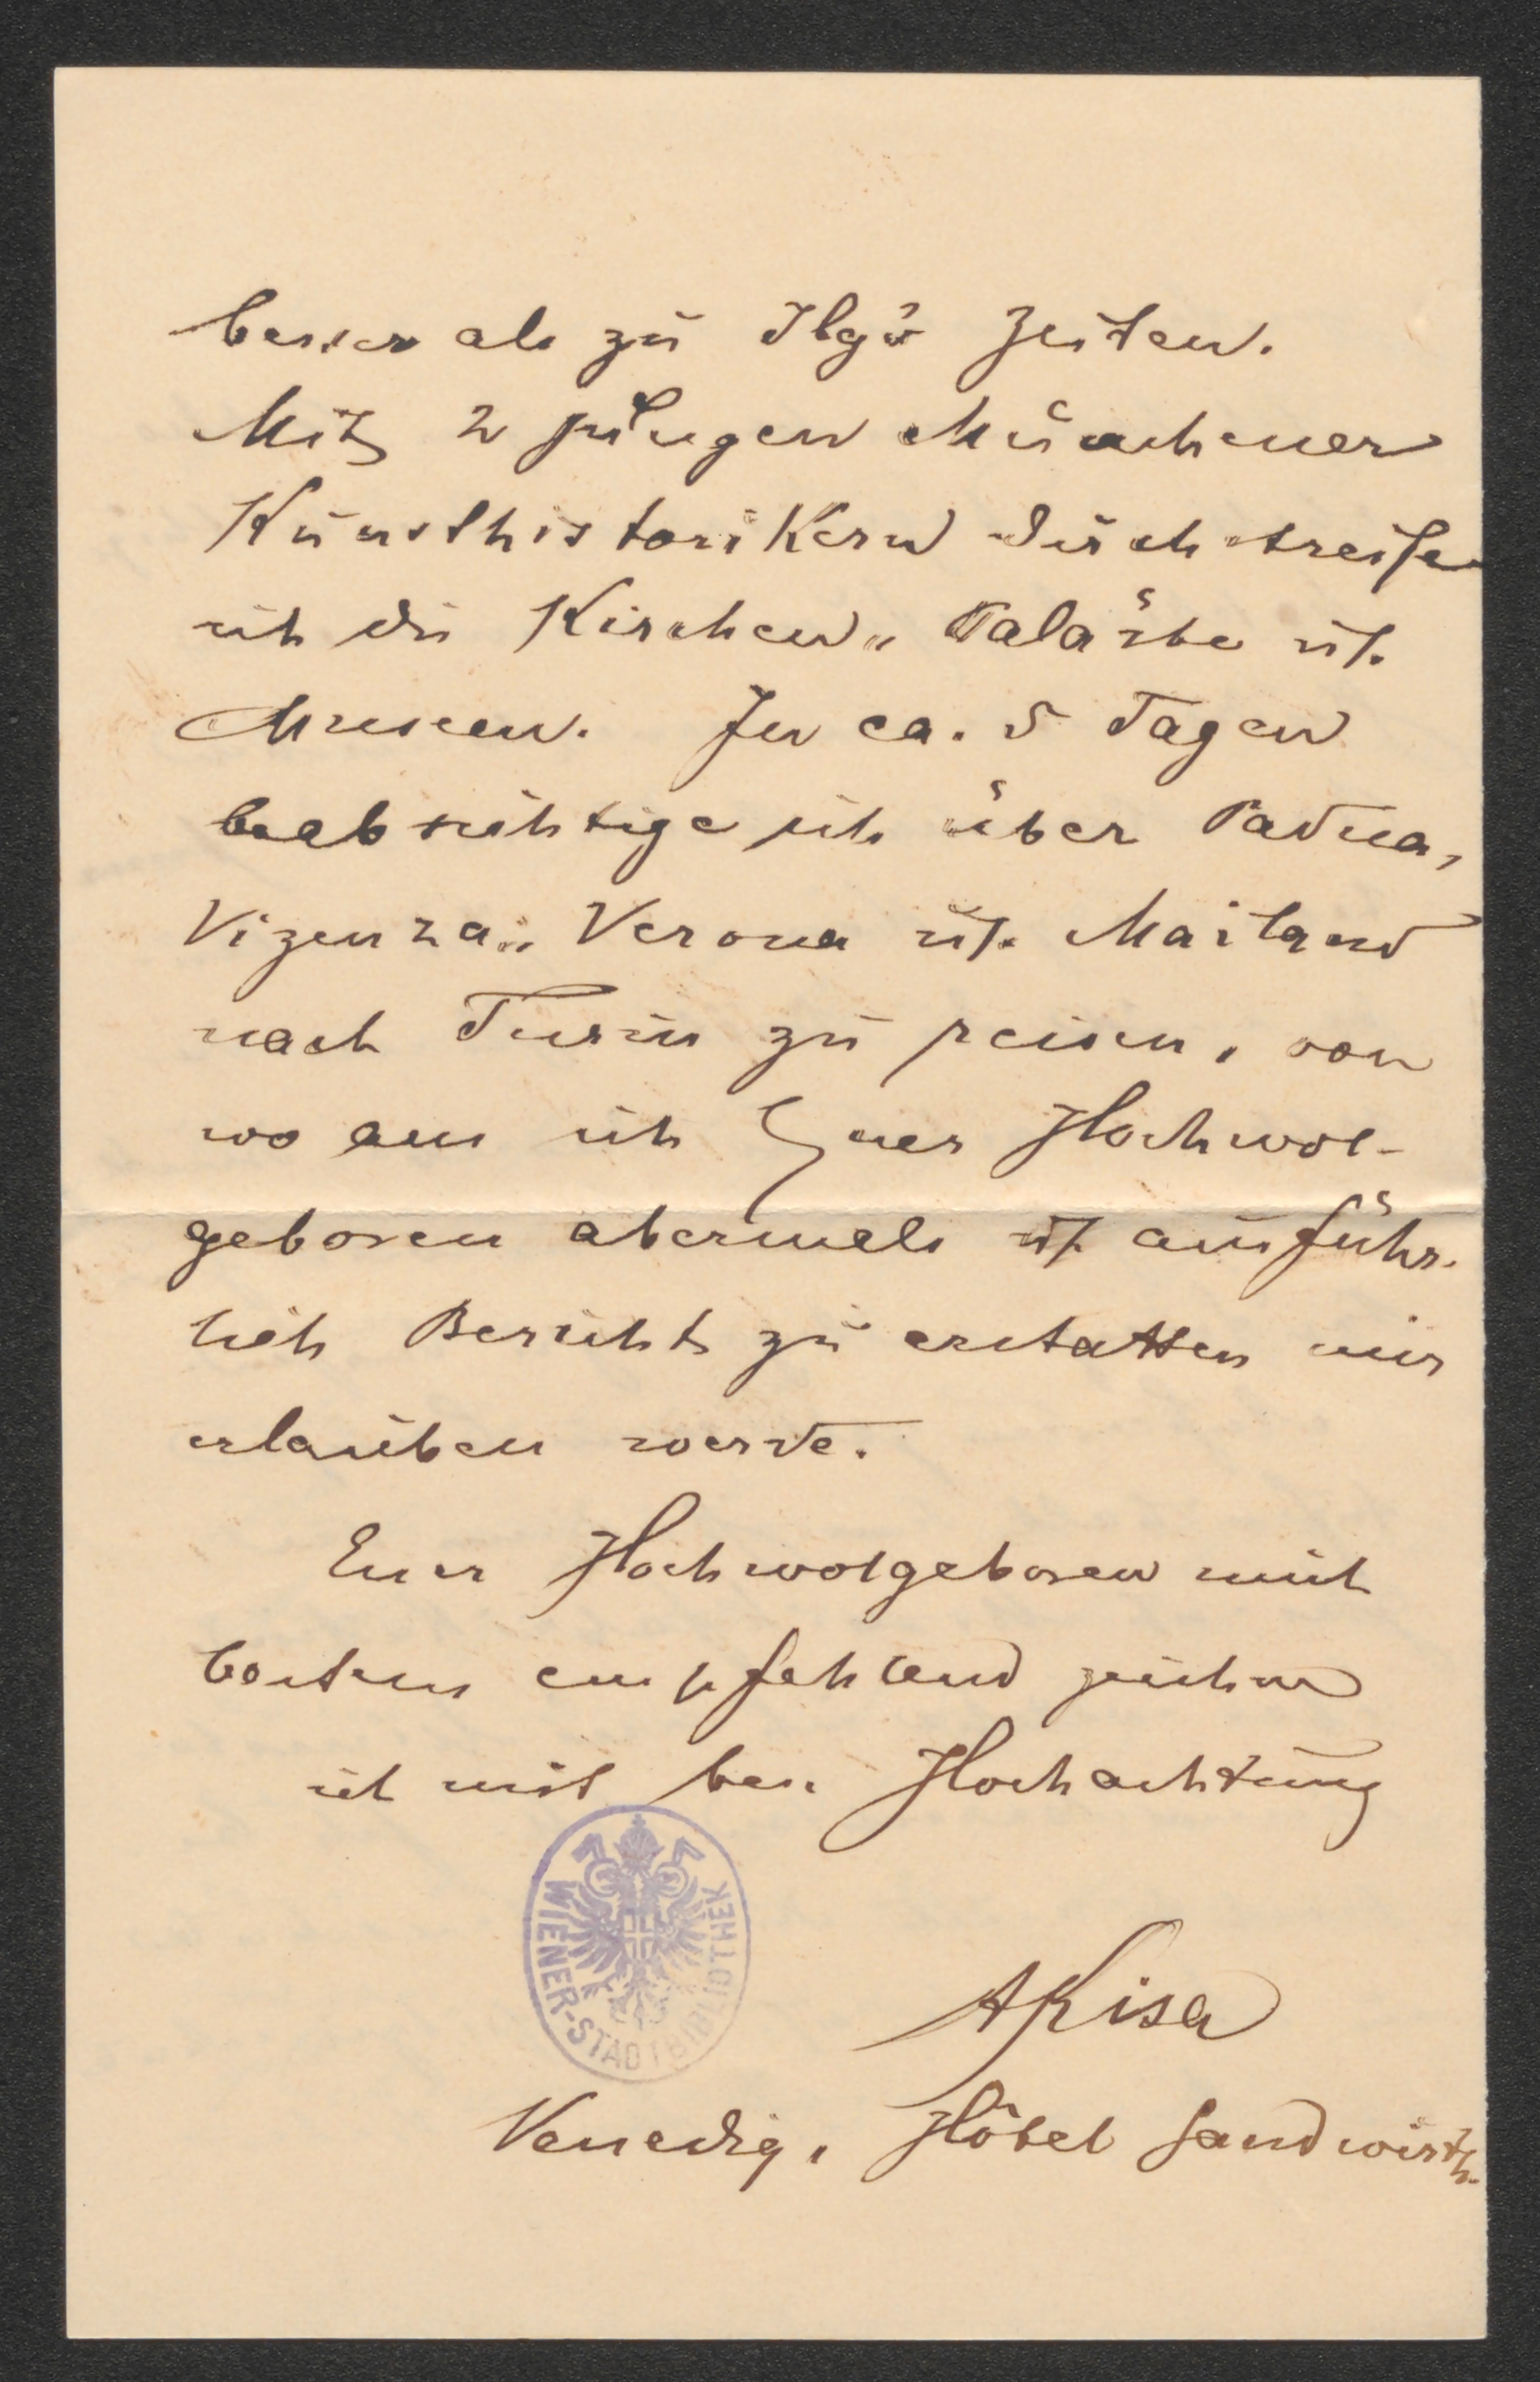 besser als zu Ilg's Zeiten.
Mit 2 jungen Münchener
Kunsthistorikern durchstreife
ich die Kirchen, Paläste u.
Museen. In ca. 5 Tagen
beabsichtige ich über Padua,
Vizenza, Verona u. Mailand
nach Turin zu reisen, von
wo aus ich Euer Hochwol-
geboren abermals u. ausführ-
lich Bericht zu erstatten mir
erlauben werde.
Euer Hochwolgeboren mich
bestens empfehlend zeichne
ich mit bes. Hochachtung
AKisa
Venedig, Hôtel Sandwirth.
WIENER-STADTBIBLIOTHEK